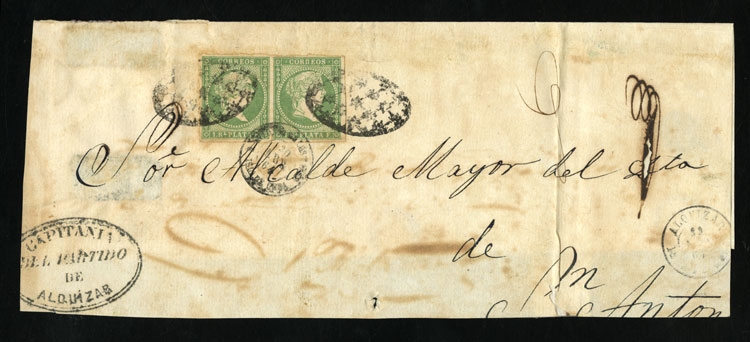 CORREOS CORREOS
1 Rl PLATA F. PLATA F.
Sor Alcalde Mayor del
de
Sn Anton
CAPITANIA
DEL PARTIDO
DE
ALQUÍZAR
ALQUIZAR